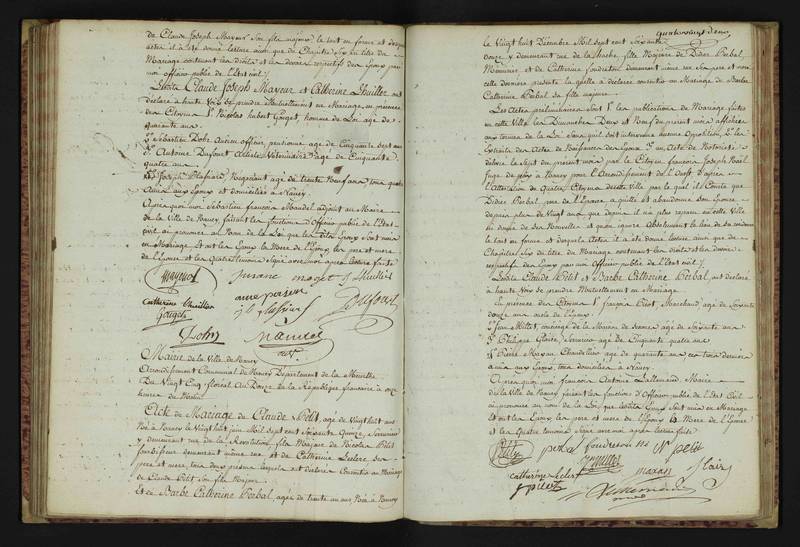 de Claude Joseph Mayeur son fils majeur, le tout en forme et desquels
actes il a été donné lecture ainsi que du Chapitre Six du titre du
Mariage contenant les droits et les devoirs respectifs des Epoux par
mon officier public de l'Etat civil
Lesdits Claude Joseph Mayeur et Catherine Lhuillier ont
déclaré à haute voix se prendre Mutuellement en Mariage, en présence
des Citoyens 1° Nicolas hubert Gouget, homme de Loi, agé de
quarante ans
2° Sébastien Dohr Ancien officier, pentionné agé de Cinquante sept ans
3° Antoine Dufour Artiste Vétérinaire agé de Cinquante
quatre ans
Joseph Negociant agé de trente Neuf ans, tous quatre
Amis aux Epoux et domiciliés à Nancy
Après quoi moi Sébastien françois Mandel adjoint au Maire
de la Ville de Nancy, faisant les fonctions d'Officier public de l'Etat
civil ai prononcé au Nom de la Loi que lesdits Epoux sont unis
en Mariage, Et ont les Epoux, la Mere de l'Epoux, les pere et mere
de l'Epouse et les quatre témoins signé avec moi après lecture faite
catherine Lhuillier
Gouget
Dufour
Dohr
Mandel
adjt.
Mairie de la Ville de Nancy
Arrondissement Communal de Nancy Département de la Meurthe
Du Vingt Cinq floréal An Douze de la République française à onze
heures du Matin
Acte de Mariage de Claude Petit, agé de Vingt huit ans
Né à Nancy le Vingt huit juin Mil sept cent Soixante Quinze, Serrurier
y demeurant rue de la Révolution, fils Majeur de Nicolas Petit
demeurant même rue et de Catherine Leclerc ses
pere et mere, tous deux présens lesquels ont déclaré Consentir au Mariage
de Claude Petit son fils Majeur
Et de Barbe Catherine Perbal, agée de trente un ans Née à Nancy
quatrevingt deux
le Vingt huit Décembre Mil sept cent Soixante
douze y demeurant rue de la hache, fille Majeure de Didier Perbal
Menuisier et de Catherine demeurant même rue Ses pere et mere
cette derniere présente laquelle a déclaré consentir au Mariage de Barbe
Catherine Perbal sa fille majeure
Les Actes préliminaires Sont 1° les publications de Mariage faites
en cette Ville les Dimanches Deux et Neuf du présent mois affichées
aux termes de la Loi Sans qu'il soit intervenu aucune opposition, 2° les
Extraits des Actes de Naissances des Epoux 3° un Acte de Notoriété
délivré le Sept du présent mois par le Citoyen françois Joseph
Juge de paix à Nancy pour l'Arrondissement de l' d'après
l'Attestation de Quatre Citoyens de cette Ville par lequel il Conste que
Didier Perbal, pere de l'Epouse a quitté et abandonné son Epouse
depuis plus de Vingt ans que depuis il n'a plus reparu en cette Ville
ni donné de ses Nouvelles et qu'on ignore absolument le lieu de sa résidence
le tout en forme et desquels Actes il a été donné lecture ainsi que du
Chapitre Six du titre du Mariage contenant les droits et les devoirs
respectifs des Epoux par mon Officier public de l'Etat civil
Lesdits Claude Petit et Barbe Catherine Perbal, ont déclaré
à haute voix se prendre Mutuellement en Mariage
En présence des Citoyens 1° françois Marchand agé de Soixante
douze ans de l'Epoux
2° Jean Millet, concierge de la Maison de agé de Soixante ans
3° Philippe Claire, Serrurier agé de Cinquante quatre ans
4° Pierre Mayan Chandellier agé de quarante ans ces trois derniers
amis aux Epoux, tous domiciliés à Nancy
Après quoi moi françois Antoine Lallemand, Maire
de la Ville de Nancy faisant les fonctions d'Officier public de l'Etat Civil
ai prononcé au nom de la Loi, que lesdits Epoux sont unis en Mariage
Et ont les Epoux, les pere et mere de l'Epoux la Mere de l'Epouse
et les quatre témoins signé avec moi après lecture faite
perbal
N petit
catherine Leclerc
mayan
Clair
Lallemand